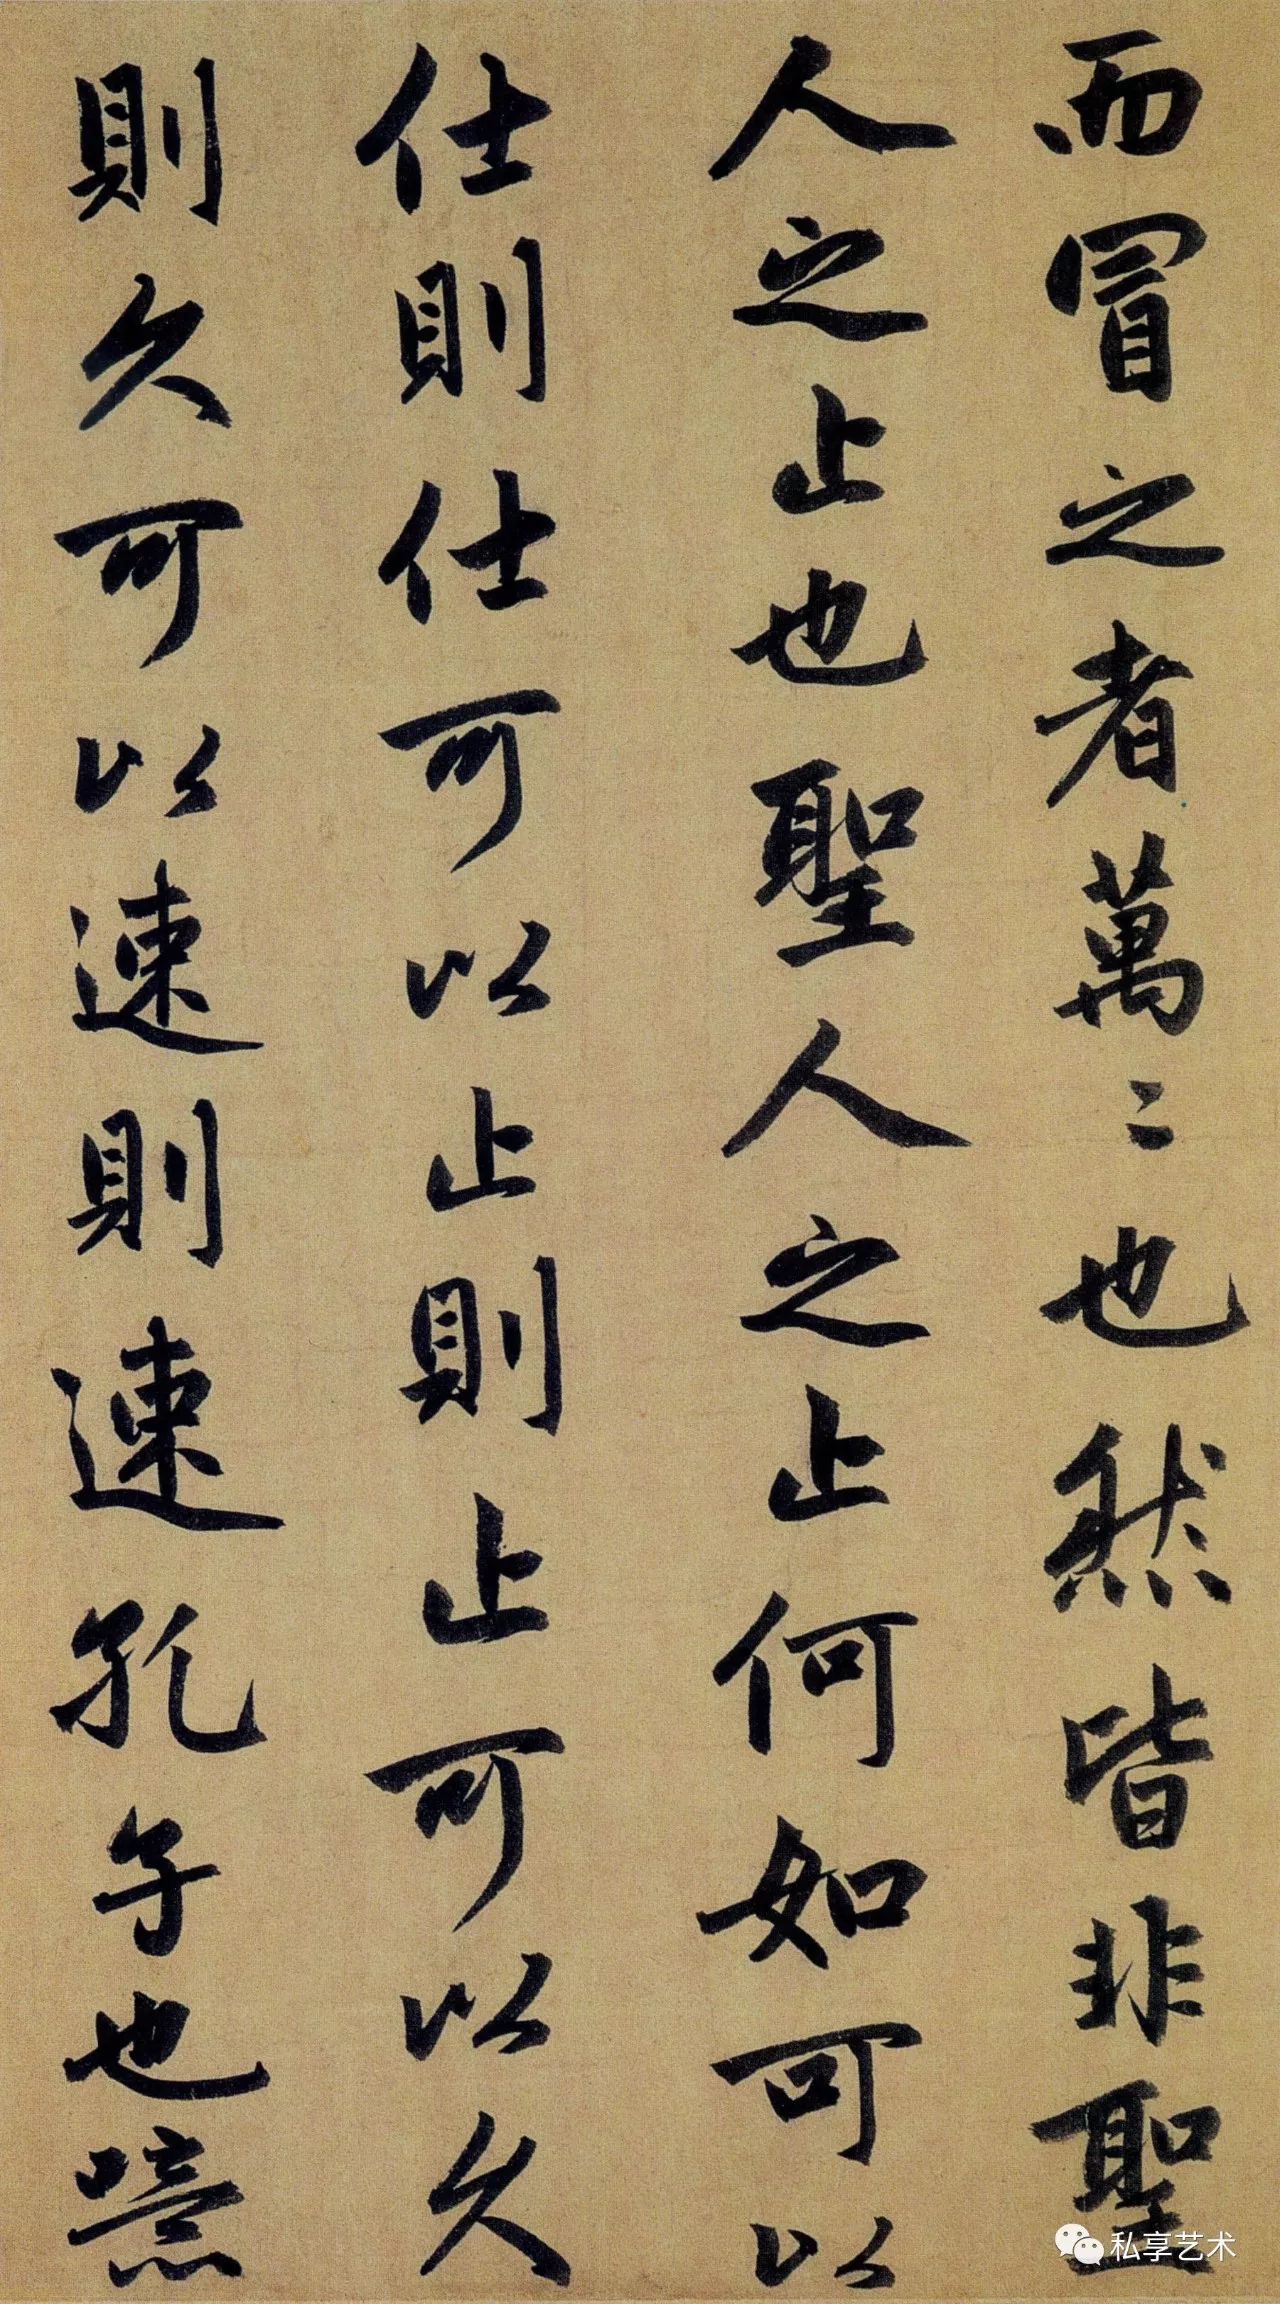 而冒之者萬〻也然皆非聖
人之止也聖人之止何如可以
仕則仕可以止則止可以久
則久可以速則速孔子也噫
私享艺术